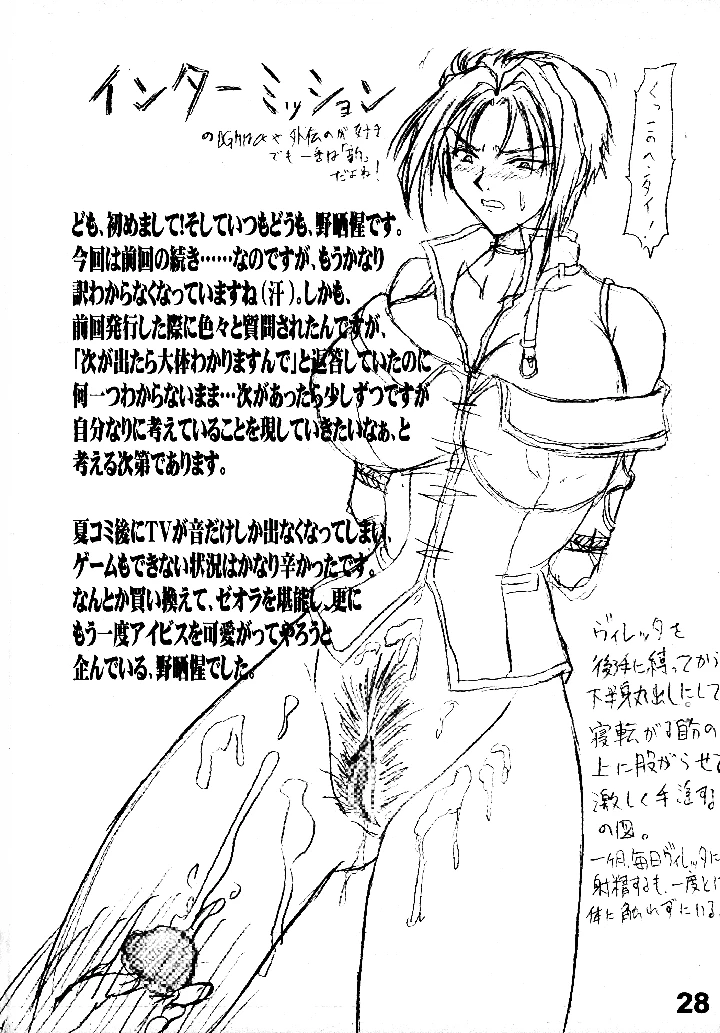 インターミッション
でも一番は「新」
だよね！
くっ このヘンタイ！
ども、初めまして！そしていつもどうも、野晒惺です。
今回は前回の続き……なのですが、もうかなり
訳わからなくなっていますね（汗）。しかも、
前回発行した際に色々と質問されたんですが、
「次が出たら大体わかりますんで」と返答していたのに
何一つわからないまま…次があったら少しずつですが
自分なりに考えていることを現していきたいなぁ、と
考える次第であります。
夏コミ後にTVが音だけしか出なくなってしまい、
ゲームもできない状況はかなり辛かったです。
なんとか買い換えて、ゼオラを堪能し、更に
もう一度アイビスを可愛がってやろうと
企んでいる、野晒惺でした。
ヴィレッタを
後手に縛ってから
下半身丸出しにして
寝転がる自分の
上に股がらせて
激しく手淫する
の図。
一ヶ月、毎日ヴィレッタに
射精するも、一度とし
体に触れずにいる。
28